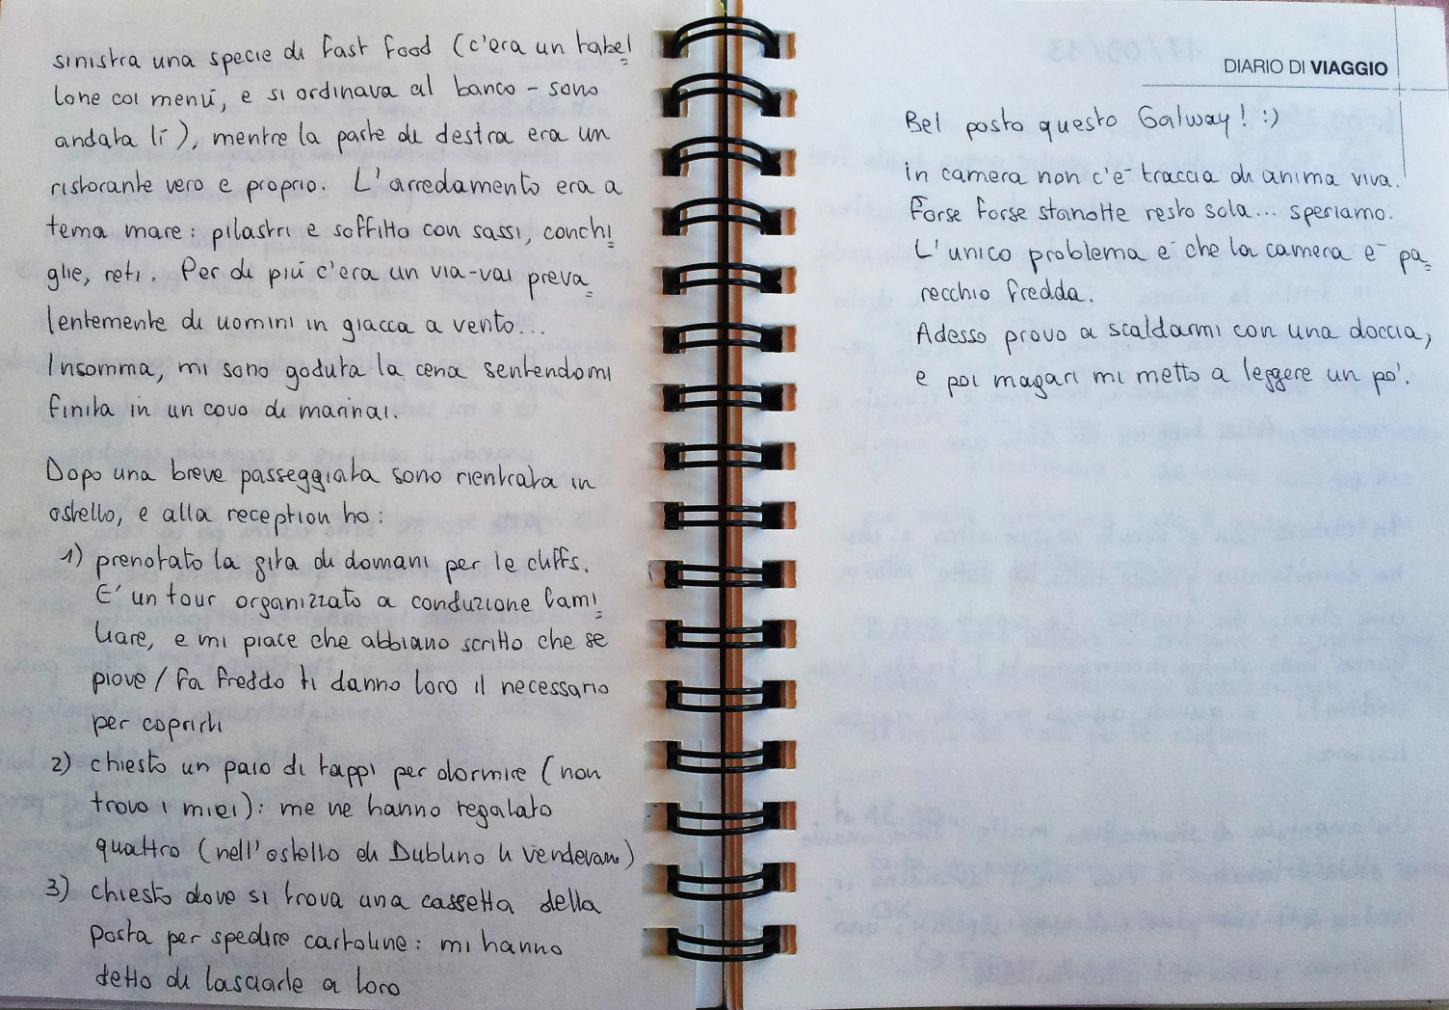 sinistra una specie di fast food (c'era un tabel
lone coi menù, e si ordinava al banco - sono
andata lì), mentre la parte di destra era un
ristorante vero e proprio. L'arredamento era a
tema mare: pilastri e soffitto con sassi, conchi
glie, reti. Per di più c'era un via-vai preva
lentemente di uomini in giacca a vento...
Insomma, mi sono goduta la cena sentendomi
finita in un covo di marinai.
Dopo una breve passeggiata sono rientrata in
ostello, e alla reception ho:
1) prenotato la gita di domani per le cliffs.
E' un tour organizzato a conduzione fami
liare, e mi piace che abbiano scritto che se
piove / fa freddo ti danno loro il necessario
per coprirti
2) chiesto un paio di tappi per dormire (non
trovo i miei): me ne hanno regalato
quattro (nell'ostello di Dublino li vendevano)
3) chiesto dove si trova una cassetta della
posta per spedire cartoline: mi hanno
detto di lasciarle a loro
DIARIO DI VIAGGIO
Bel posto questo Galway! :)
in camera non c'è traccia di anima viva.
Forse forse stanotte resto sola... speriamo.
L'unico problema è che la camera è pa
recchio fredda.
Adesso provo a scaldarmi con una doccia,
e poi magari mi metto a leggere un po'.